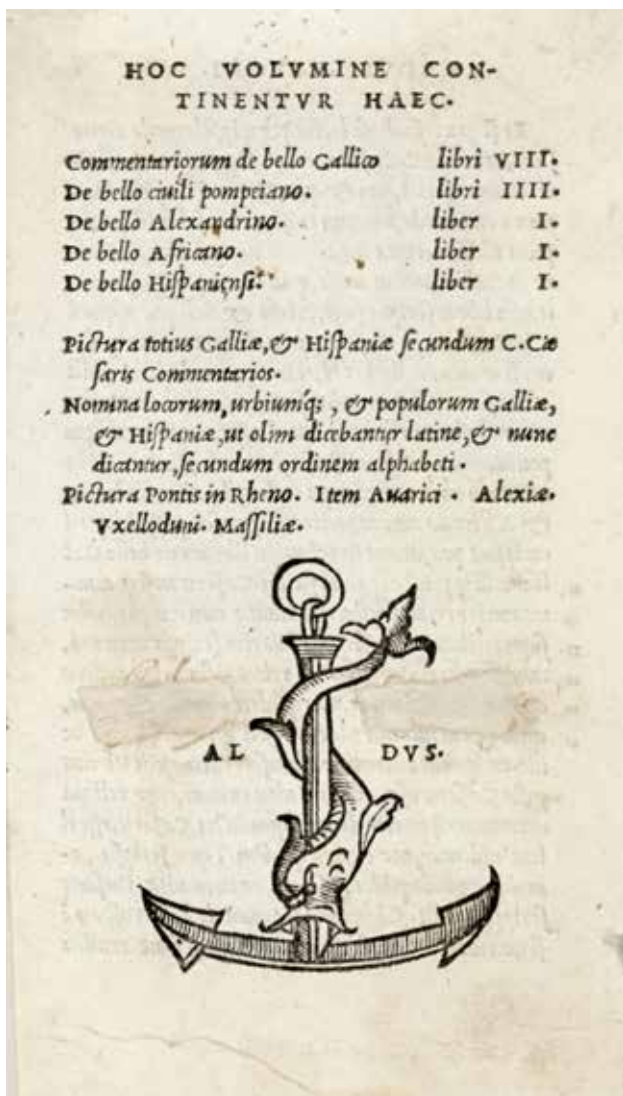 HOC VOLVMINE CON-
TINENTVR HAEC.
Commentariorum de bello Gallico libri VIII.
De bello ciuili pompeiano. libri IIII.
De bello Alexandrino. liber I.
De bello Africano. liber I.
De bello Hiſpaniẽnſi. liber I.
Pictura totius Galliæ, & Hiſpaniæ ſecundum C. Cæ
ſaris Commentarios.
Nomina locorum, urbiumq; , & populorum Galliæ,
& Hiſpaniæ, ut olim dicebantur latine, & nunc
dicantur, ſecundum ordinem alphabeti.
Pictura Pontis in Rheno. Item Auarici. Alexiæ.
Vxelloduni. Maſſiliæ.
AL DVS.